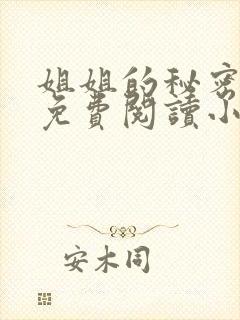 姐姐的秘密
免費閱讀小
安木同